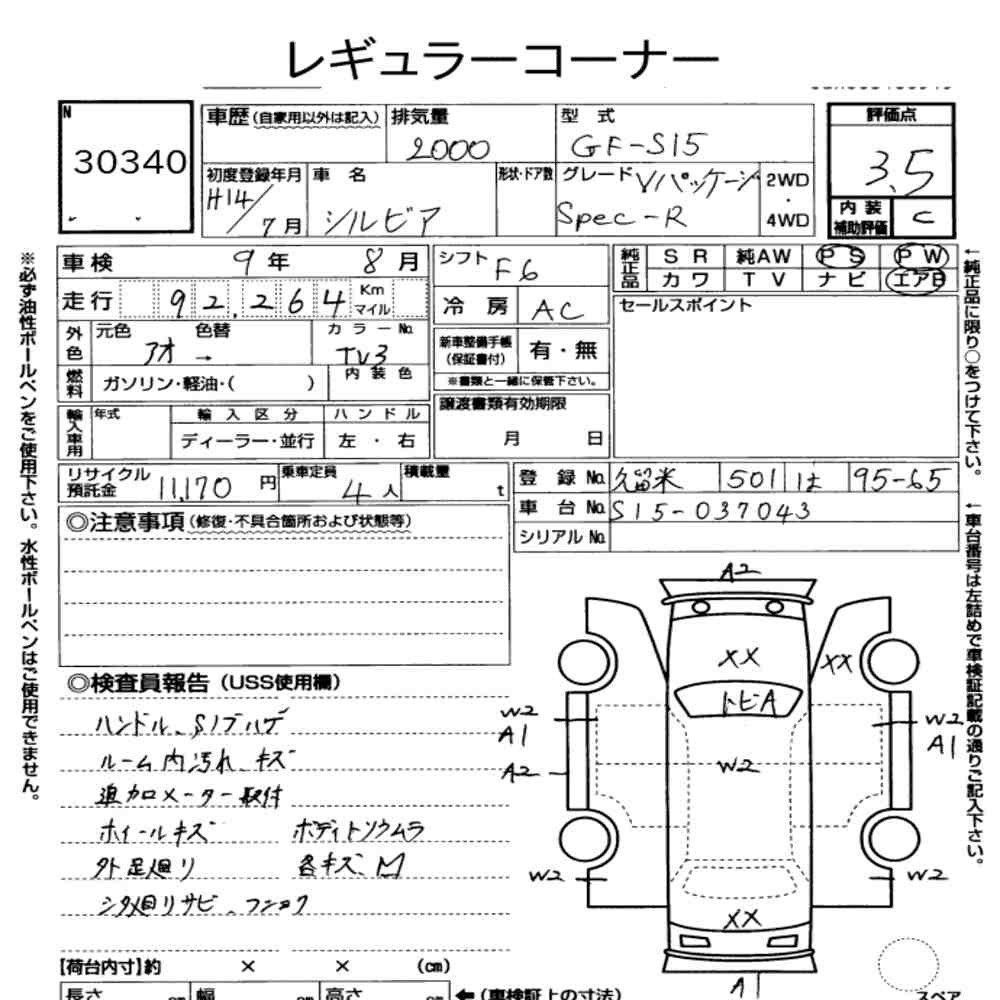 レギュラーコーナー
N
30340
車歴(自家用以外は記入)
排気量
2000
型 式
GF-S15
評価点
3.5
初度登録年月
H14/7月
車 名
シルビア
形状・ドア数
グレード Vパッケージ
Spec-R
2WD
・
4WD
内 装
補助評価
C
車検 9年 8月
シフト F6
純正品
SR 純AW PS PW
カワ TV ナビ エアB
走行 92,264 Km マイル
冷 房 AC
セールスポイント
外色
元色 色替
アオ →
カラーNo.
TV3
新車整備手帳
(保証書付)
有・無
※書類と一緒に保管下さい。
燃料
ガソリン・軽油・( )
内装色
譲渡書類有効期限
月 日
輸入車用
年式
輸入区分
ハンドル
ディーラー・並行
左・右
リサイクル
預託金
11,170円
乗車定員
4人
積載量
t
登 録 No. 久留米 501 は 95-65
車 台 No. S15-037043
シリアル No.
◎注意事項(修復・不具合箇所および状態等)
◎検査員報告(USS使用欄)
ハンドル、S1ブハゲ
ルーム内汚れ、キズ
追加メーター取付
ホイールキズ ボディトソウムラ
外足廻り 各キズ、凹
シタ廻りサビ、フショク
A2
XX
XX
トビA
W2
A1
W2
A1
A2
W2
W2
W2
XX
A1
【荷台内寸】約 × × (cm)
長さ cm 幅 cm 高さ cm
←(車検証上の寸法)
スペア
※必ず油性ボールペンをご使用下さい。水性ボールペンはご使用できません。
←純正品に限り○をつけて下さい。
←車台番号は左詰めで車検証記載の通りご記入下さい。